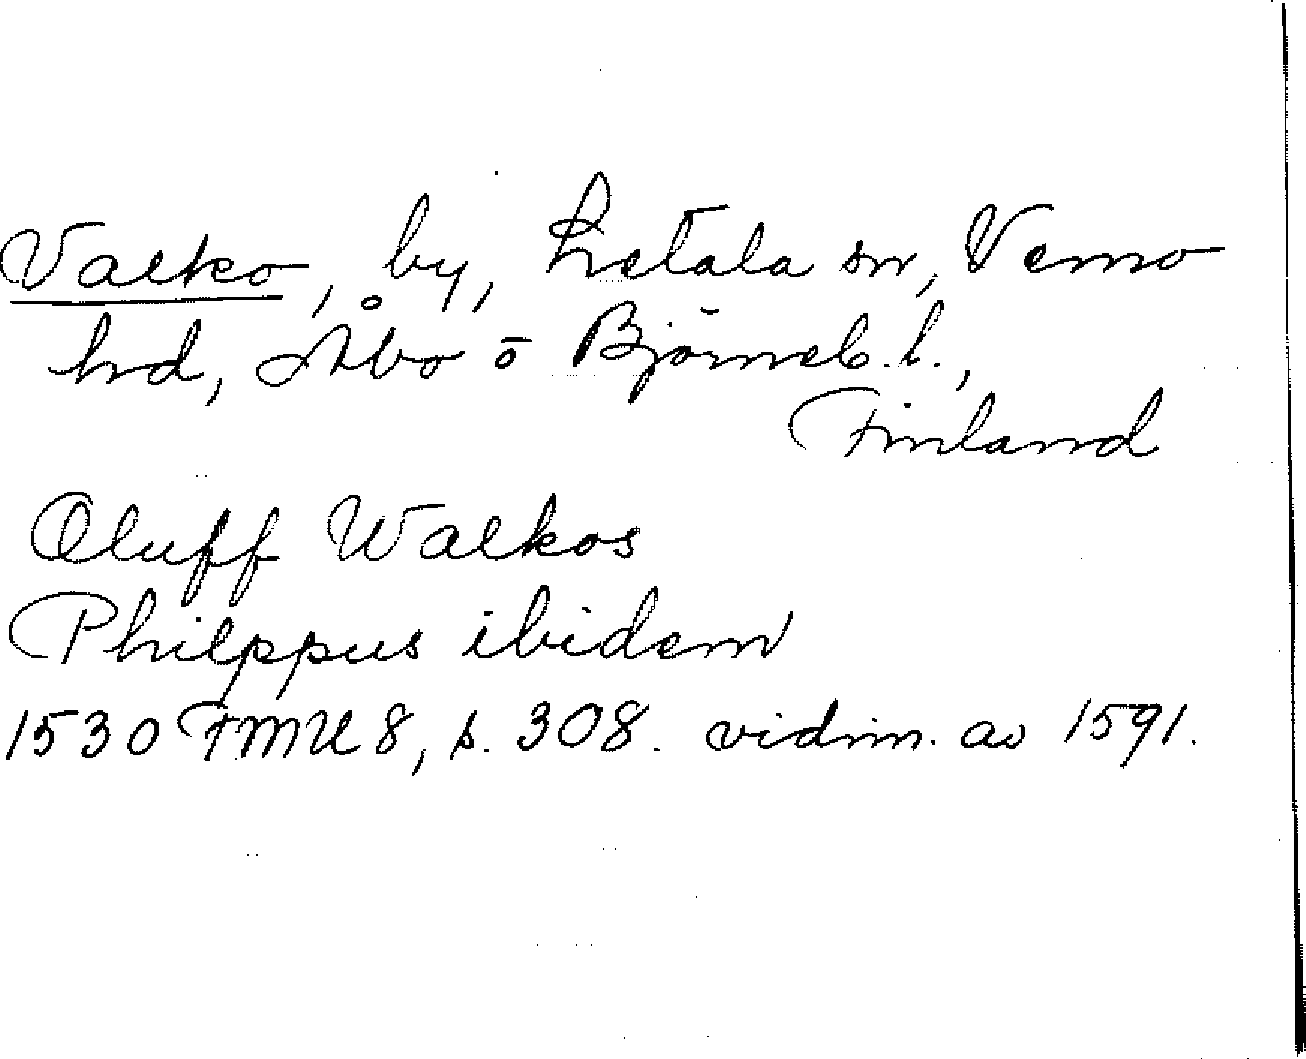 Valko, by, Letala sn, Vemo
hrd, Åbo o Björneb. l.,
Finland
Oluff Walkos
Philppus ibidem
1530 FMU 8, s. 308. vidim. av 1591.